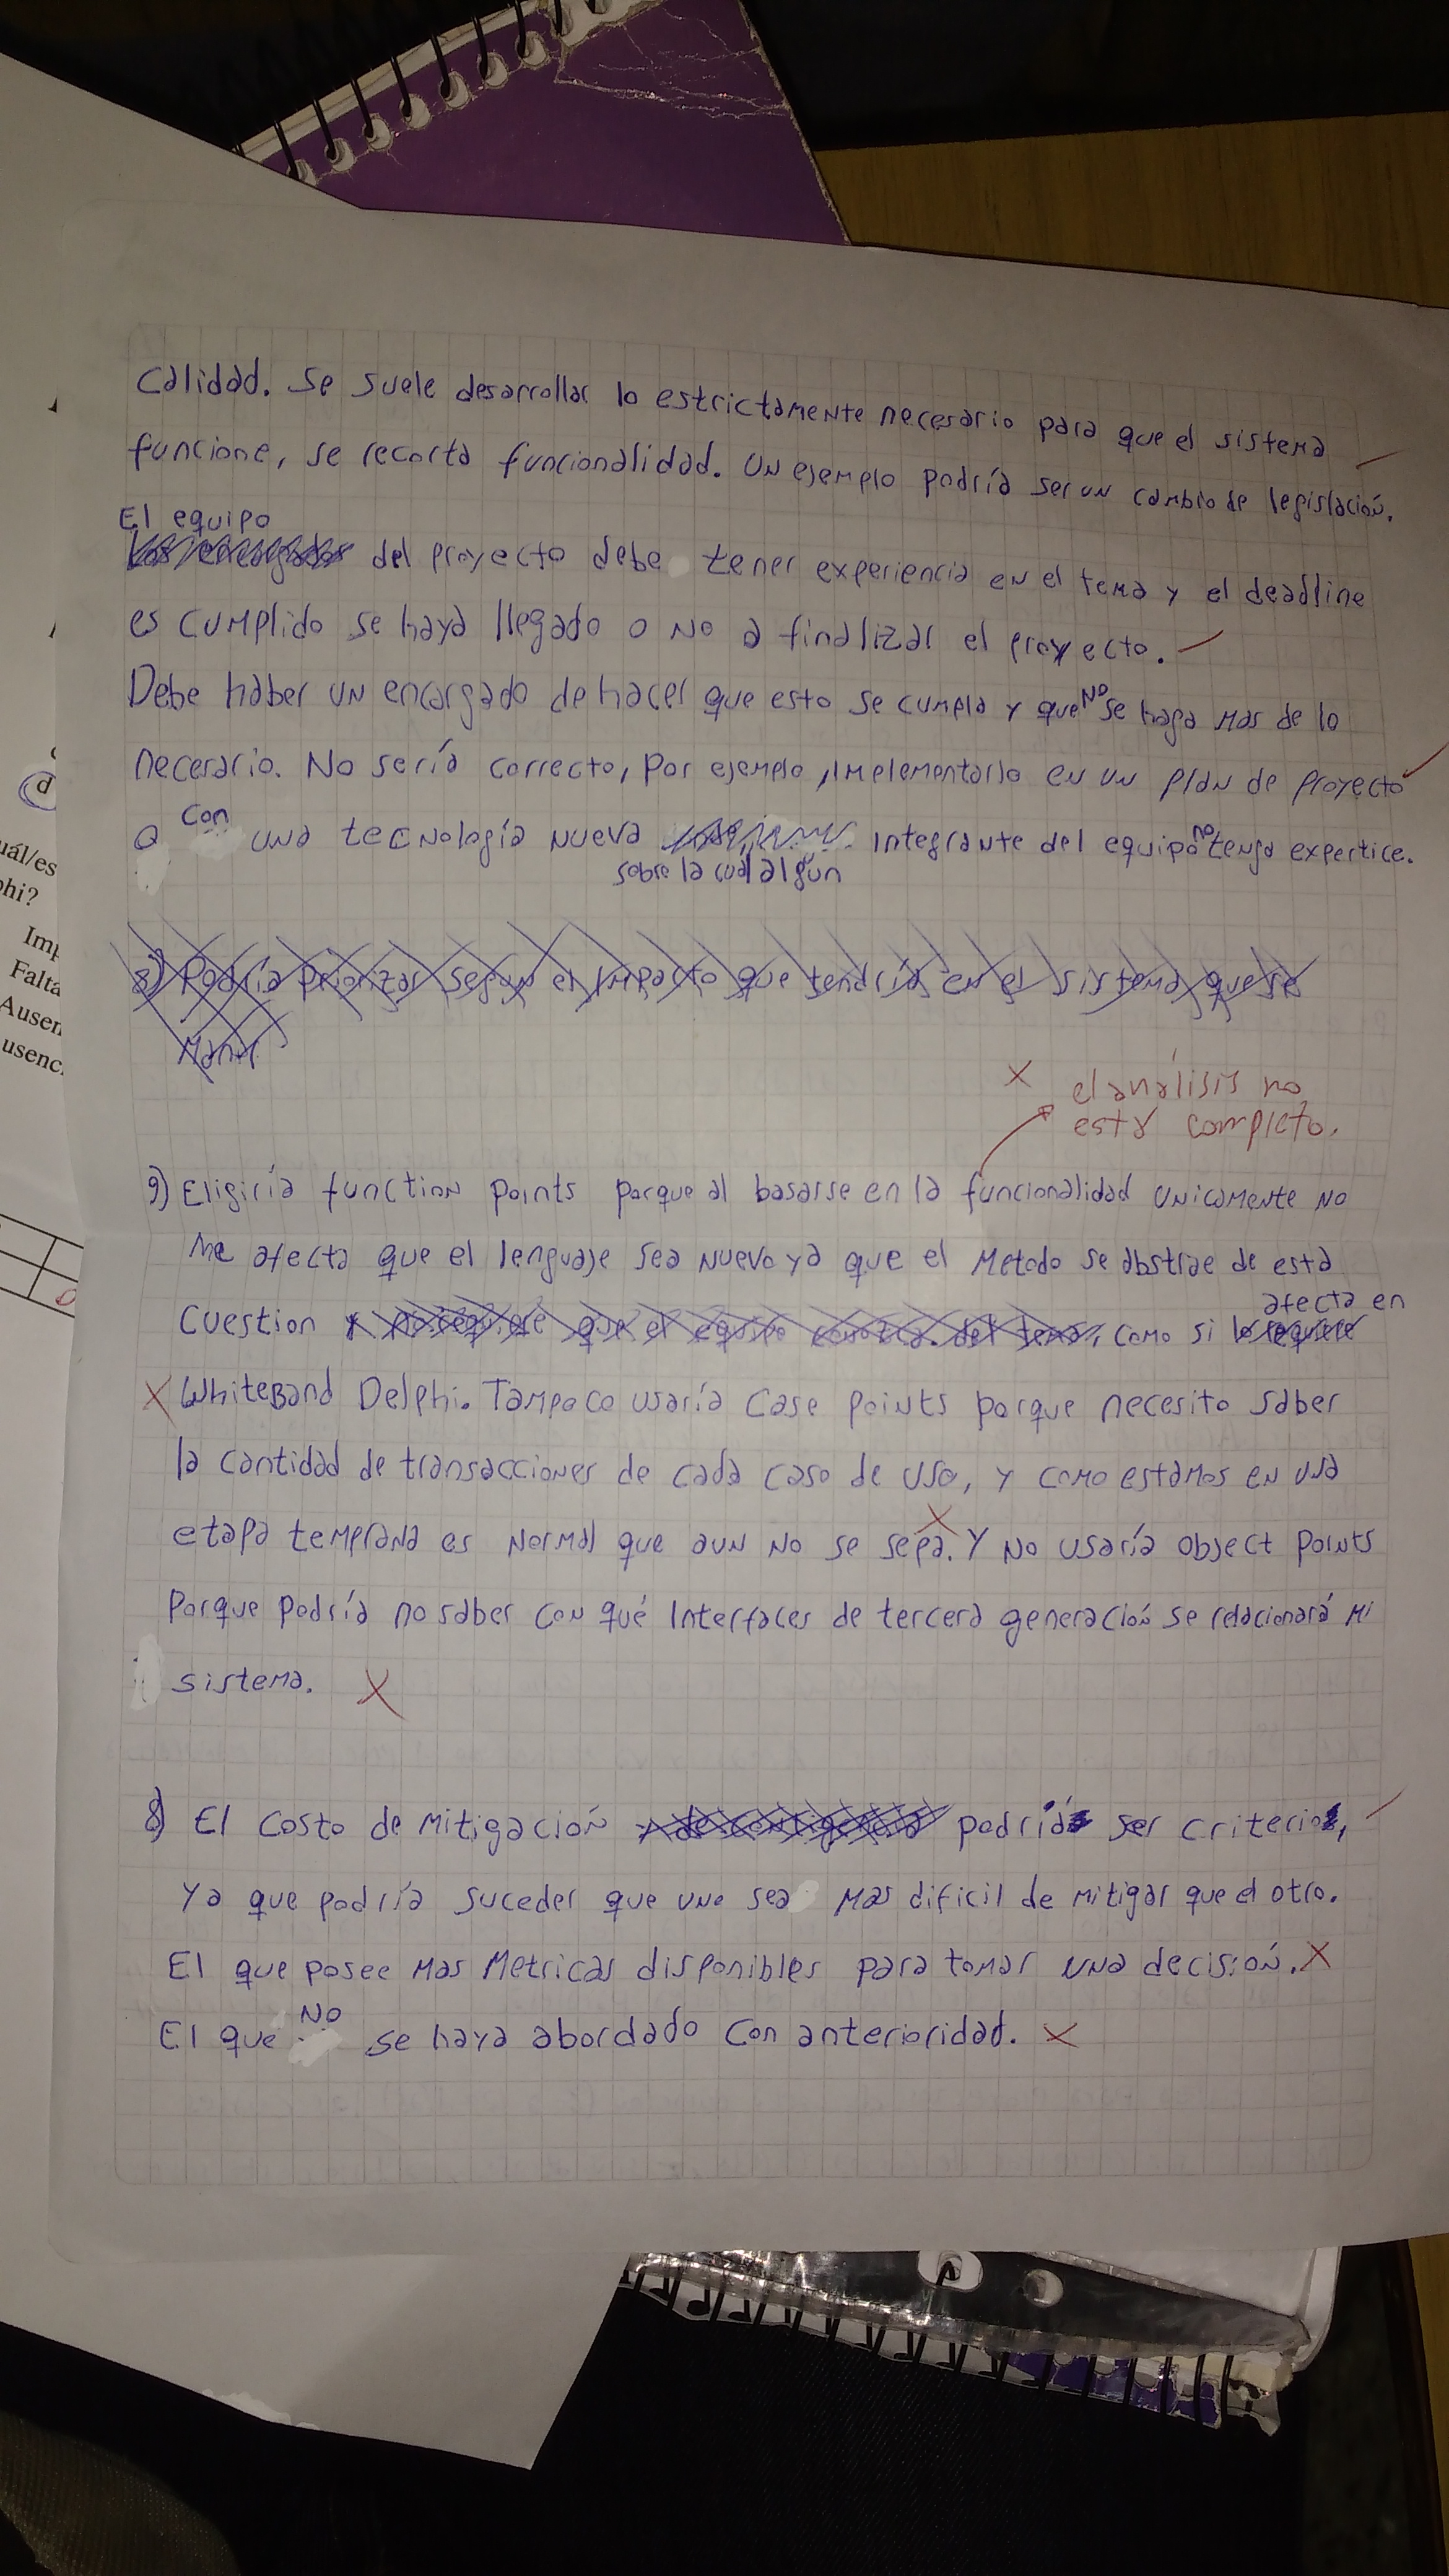 Calidad. Se suele desarrollar lo estrictamente necesario para que el sistema
funcione, se recorta funcionalidad. Un ejemplo podría ser un cambio de legislación.
El equipo
del proyecto debe tener experiencia en el tema y el deadline
es cumplido se haya llegado o no a finalizar el proyecto.
Debe haber un encargado de hacer que esto se cumpla y que no se haga mas de lo
necesario. No sería correcto, por ejemplo, implementarlo en un plan de proyecto
o con una tecnología nueva integrante del equipo no tenga expertice.
sobre la cual algún
8) Podría priorizar segun el impacto que tendría en el sistema que se
X el análisis no
está completo.
9) Eligiría function points porque al basarse en la funcionalidad unicamente no
me afecta que el lenguaje sea nuevo ya que el metodo se abstrae de esta
afecta en
cuestion y no requiere que el equipo conozca del tema, como si lo requiere
X WhiteBand Delphi. Tampoco usaría Case Points porque necesito saber
la cantidad de transacciones de cada caso de uso, y como estamos en una
X
etapa temprana es normal que aun no se sepa. Y no usaría object points
porque podría no saber con qué interfaces de tercera generación se relacionará mi
sistema. X
8) El costo de mitigación podría ser criterio,
ya que podría suceder que uno sea mas dificil de mitigar que el otro.
El que posee mas metricas disponibles para tomar una decisión. X
El que no se haya abordado con anterioridad. X
d
uál/es
phi?
Imp
Falta
Ausen
usenc